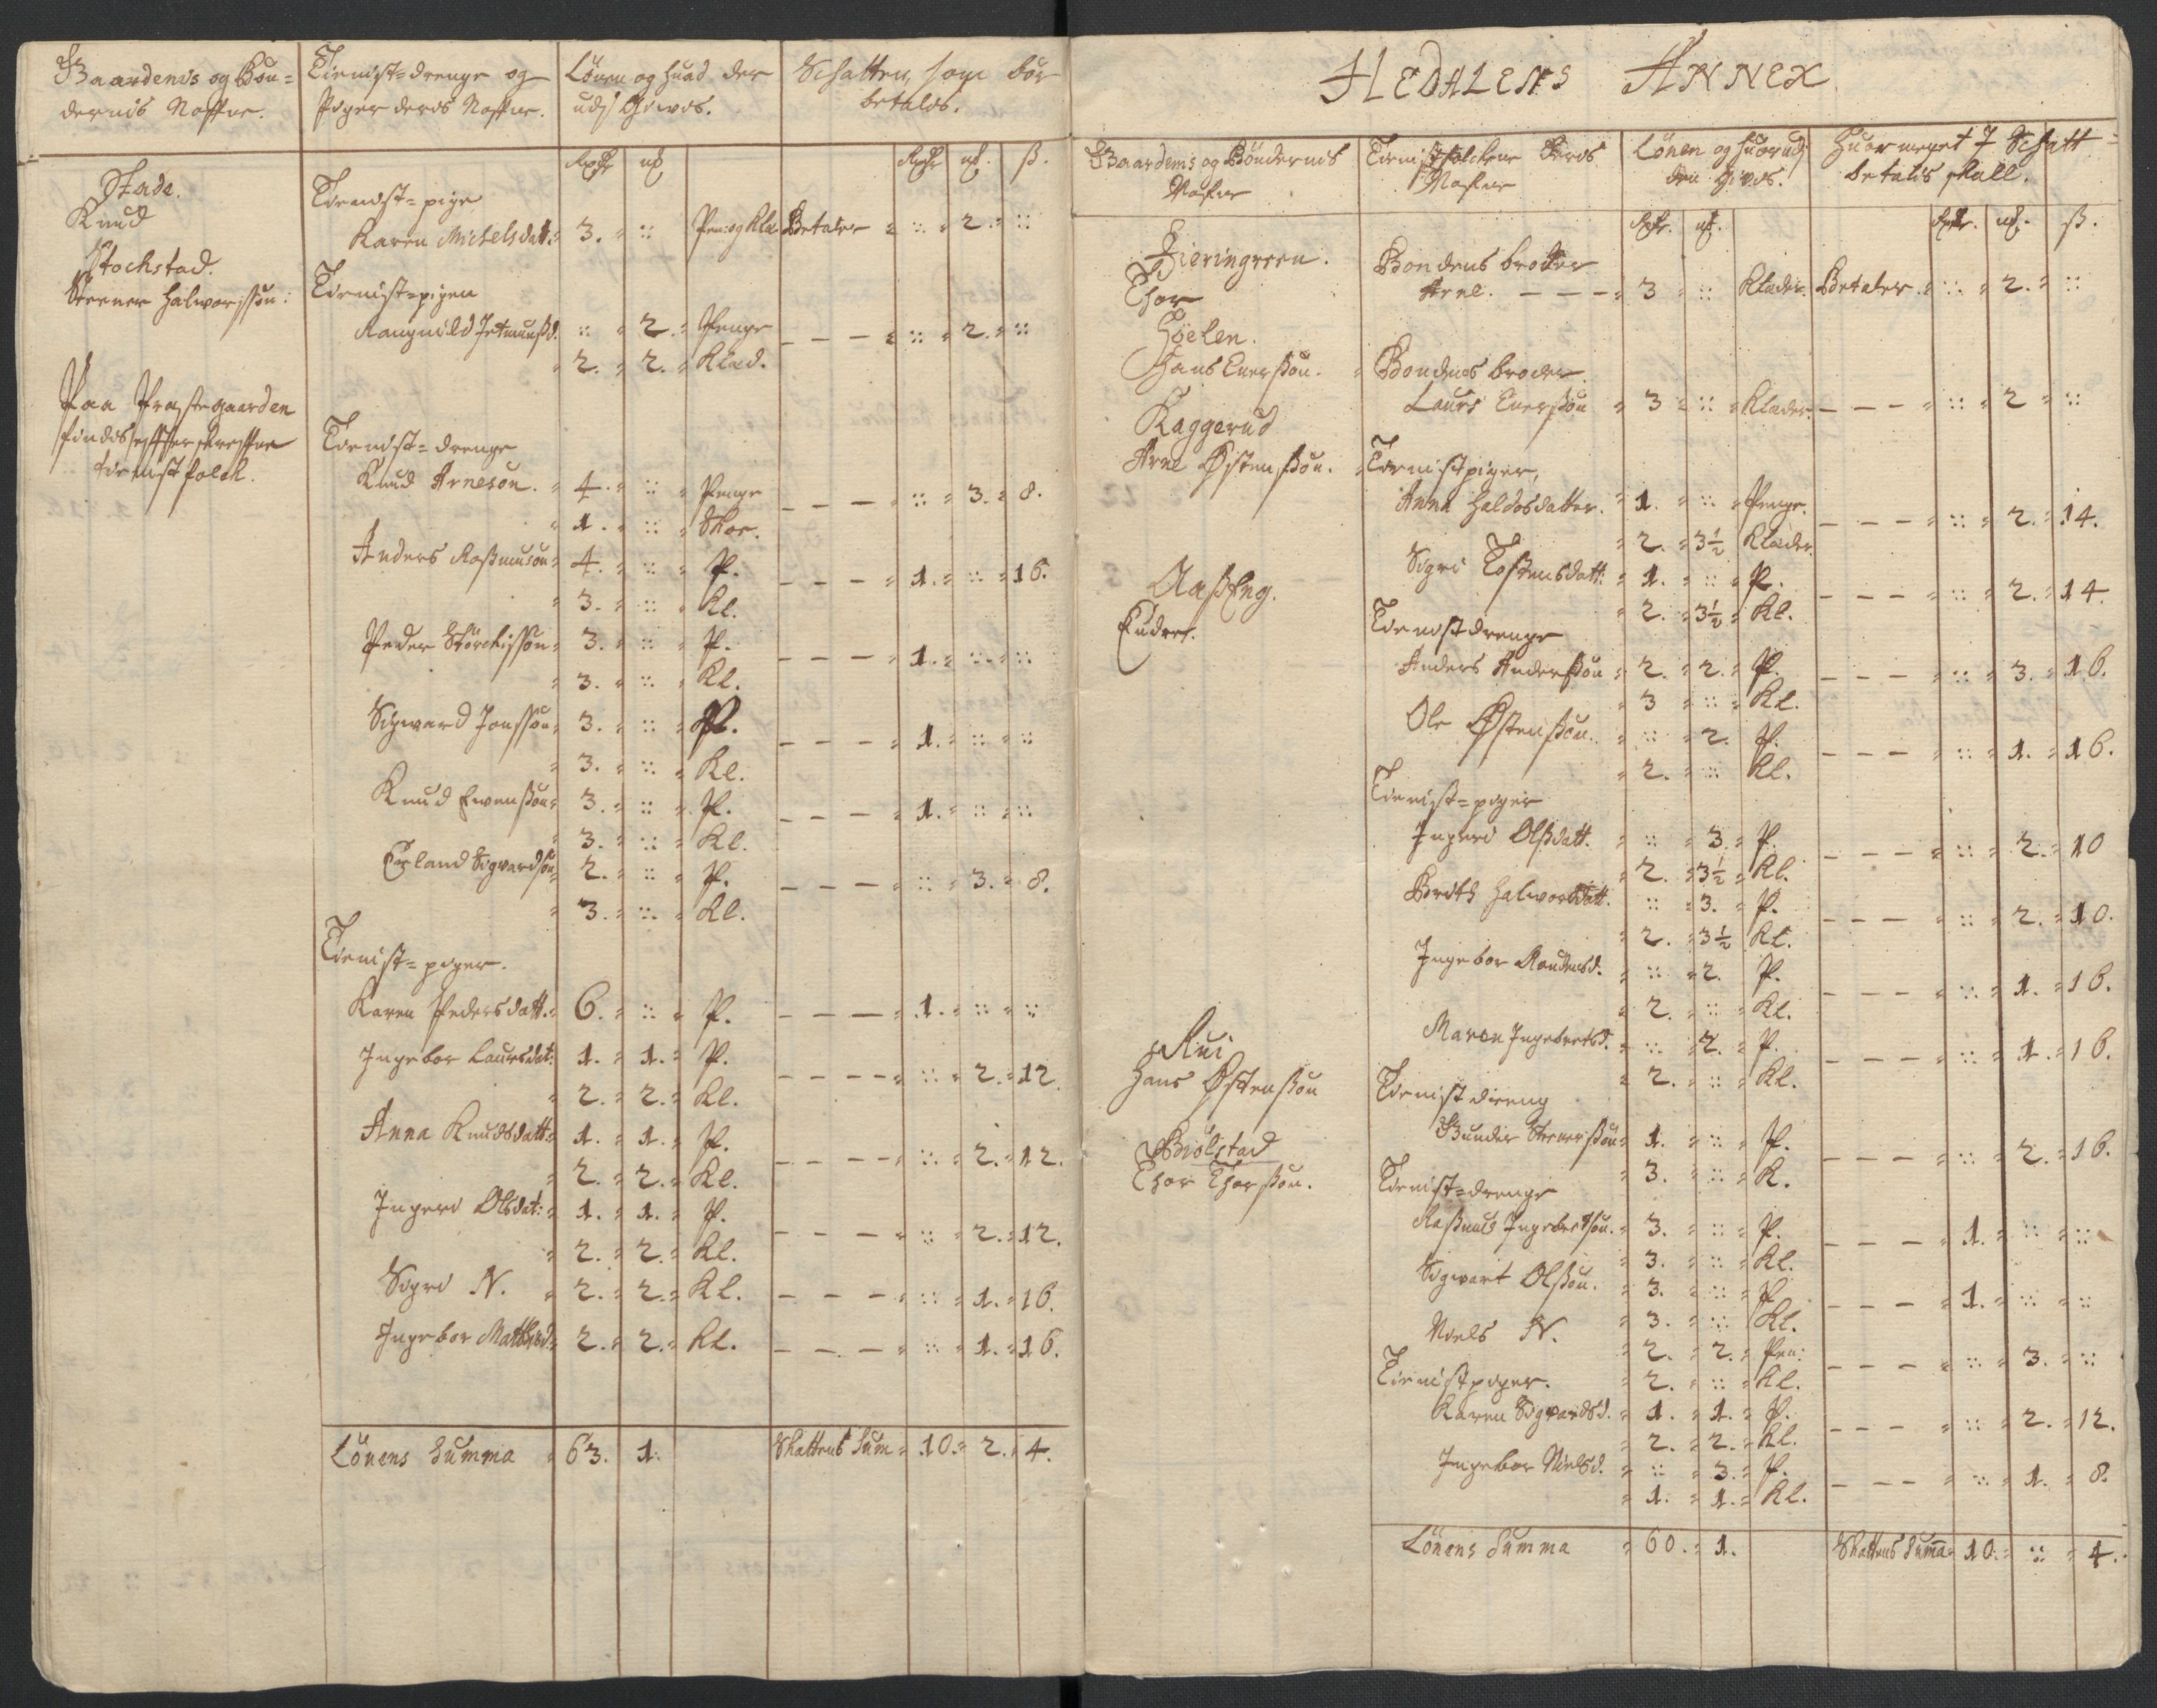 Gaardenis og Bön=
dernis Nafne.
Tienist=drenge og
Piger deris Nafne.
Lönen og huad der
udj Gives.
Schatten, som bör
betales.
Rdr mk
Rdr mk. ß.
Stade.
Knud
Tienist=pige
Karen Michelsdatt. 3. :: Pen: og Klæ Betaler :: 2. ::
Stochstad.
Steener Halworssön:
Tienist=pigen
Rangnild Jetmundsd. :: 2. Penge — — — :: 2. ::
2. 2. Klæd.
Paa Præstegaarden
findis effterskrefne
tienistfolch.
Tienist=drenge
Knud Arnesön. 4. :: Penge — — — :: 3. 8.
1. :: Skoe.
Anders Rasmusön 4. :: P. — — — 1. :: 16.
3. :: Kl.
Peder Störchissön 3. :: P. — — — 1. :: ::
3. :: Kl.
Sigward Jonssön 3. :: P. — — — 1. :: ::
3. :: Kl.
Knud Ewensön 3. :: P. — — — 1. :: ::
3. :: Kl.
Erland Sigvardsön 2. :: P. — — — :: 3. 8.
3. :: Kl.
Tienist=piger.
Karen Pedersdatt. 6. :: P. — — — 1. :: ::
Ingebor Laursdat: 1. 1. P. — — — — :: 2. 12.
2. 2. Kl.
Anna Knudsdatt: 1. 1. P. — — — — :: 2. 12.
2. 2. Kl.
Ingeri Olsdat: 1. 1. P. — — — :: 2. 12.
2. 2. Kl.
Sigri N. 2. 2. Kl. — — — :: 1. 16.
Ingebor Mathisd 2. 2. Kl. — — — :: 1. 16.
Lönens Summa 63. 1. Skattens Sum 10. 2. 4.
HEDALENS ANNEX
Gaardenis og Böndernis
Nafne
Tienistfolckene Deris
Nafne
Lönen og huorudj
den Gives.
Huor meget J Schatt
betalis skall.
Rdr. mk.
Rdr. mk. ß.
Gieringreen.
Thor
Bondens broder
Arne. — — — 3 :: Klæder. Betaler. :: 2. ::
Göelen.
Hans Enersön.
Bondens broder.
Laurs Enersön 3 :: Klæder. — — — :: 2 ::
Kaggerud
Arne Østensön.
Tienistpiger,
Anna Haldosdatter. 1. :: Penge. — — — :: 2. 14.
2. 3½ Klæder.
Sigri Tostensdatt: 1. :: P. — — — :: 2. 14.
2. 3½ Kl.
AasEng.
Endre.
Tienistdrenge
Anders Andersön 2. 2. P. — — — :: 3. 16.
3 :: Kl.
Ole Østensön. :: 2. P. — — — :: 1. 16.
2. :: Kl.
Tienist=piger
Ingeri Olsdatt. :: 3. P. — — — :: 2. 10
2. 3½ Kl.
Berith Halworsdatt. :: 3. P. — — — :: 2. 10.
2. 3½ Kl.
Ingebor Amundsd. :: 2. P. — — — :: 1. 16.
2. :: Kl.
Maren Ingebretsd. :: 2. P. — — — :: 1. 16.
2. :: Kl.
Rui
Hans Østensön
Tienistdreng
Gunder Steenersön 1. :: P. — — — :: 2. 16.
3. :: K.
Biölstad
Thor Thorsön.
Tienist=drenge
Rasmus Ingebretsön. 3. :: P. — — — 1. :: ::
3. :: Kl.
Sigwart Olsön. 3. :: P. — — — 1. :: ::
3. :: Kl.
Niels N. 2. 2. Pen: — — — :: 3. ::
2. :: Kl.
Tienistpiger.
Karen Sigvardsd. 1. 1. P. — — — :: 2. 12.
2. 2. Kl.
Ingebor Nielsd. :: 3. P. — — — :: 1. 8.
1. 1. Kl.
Lönens Summa 60. 1. Skattens Summa 10. :: 4.